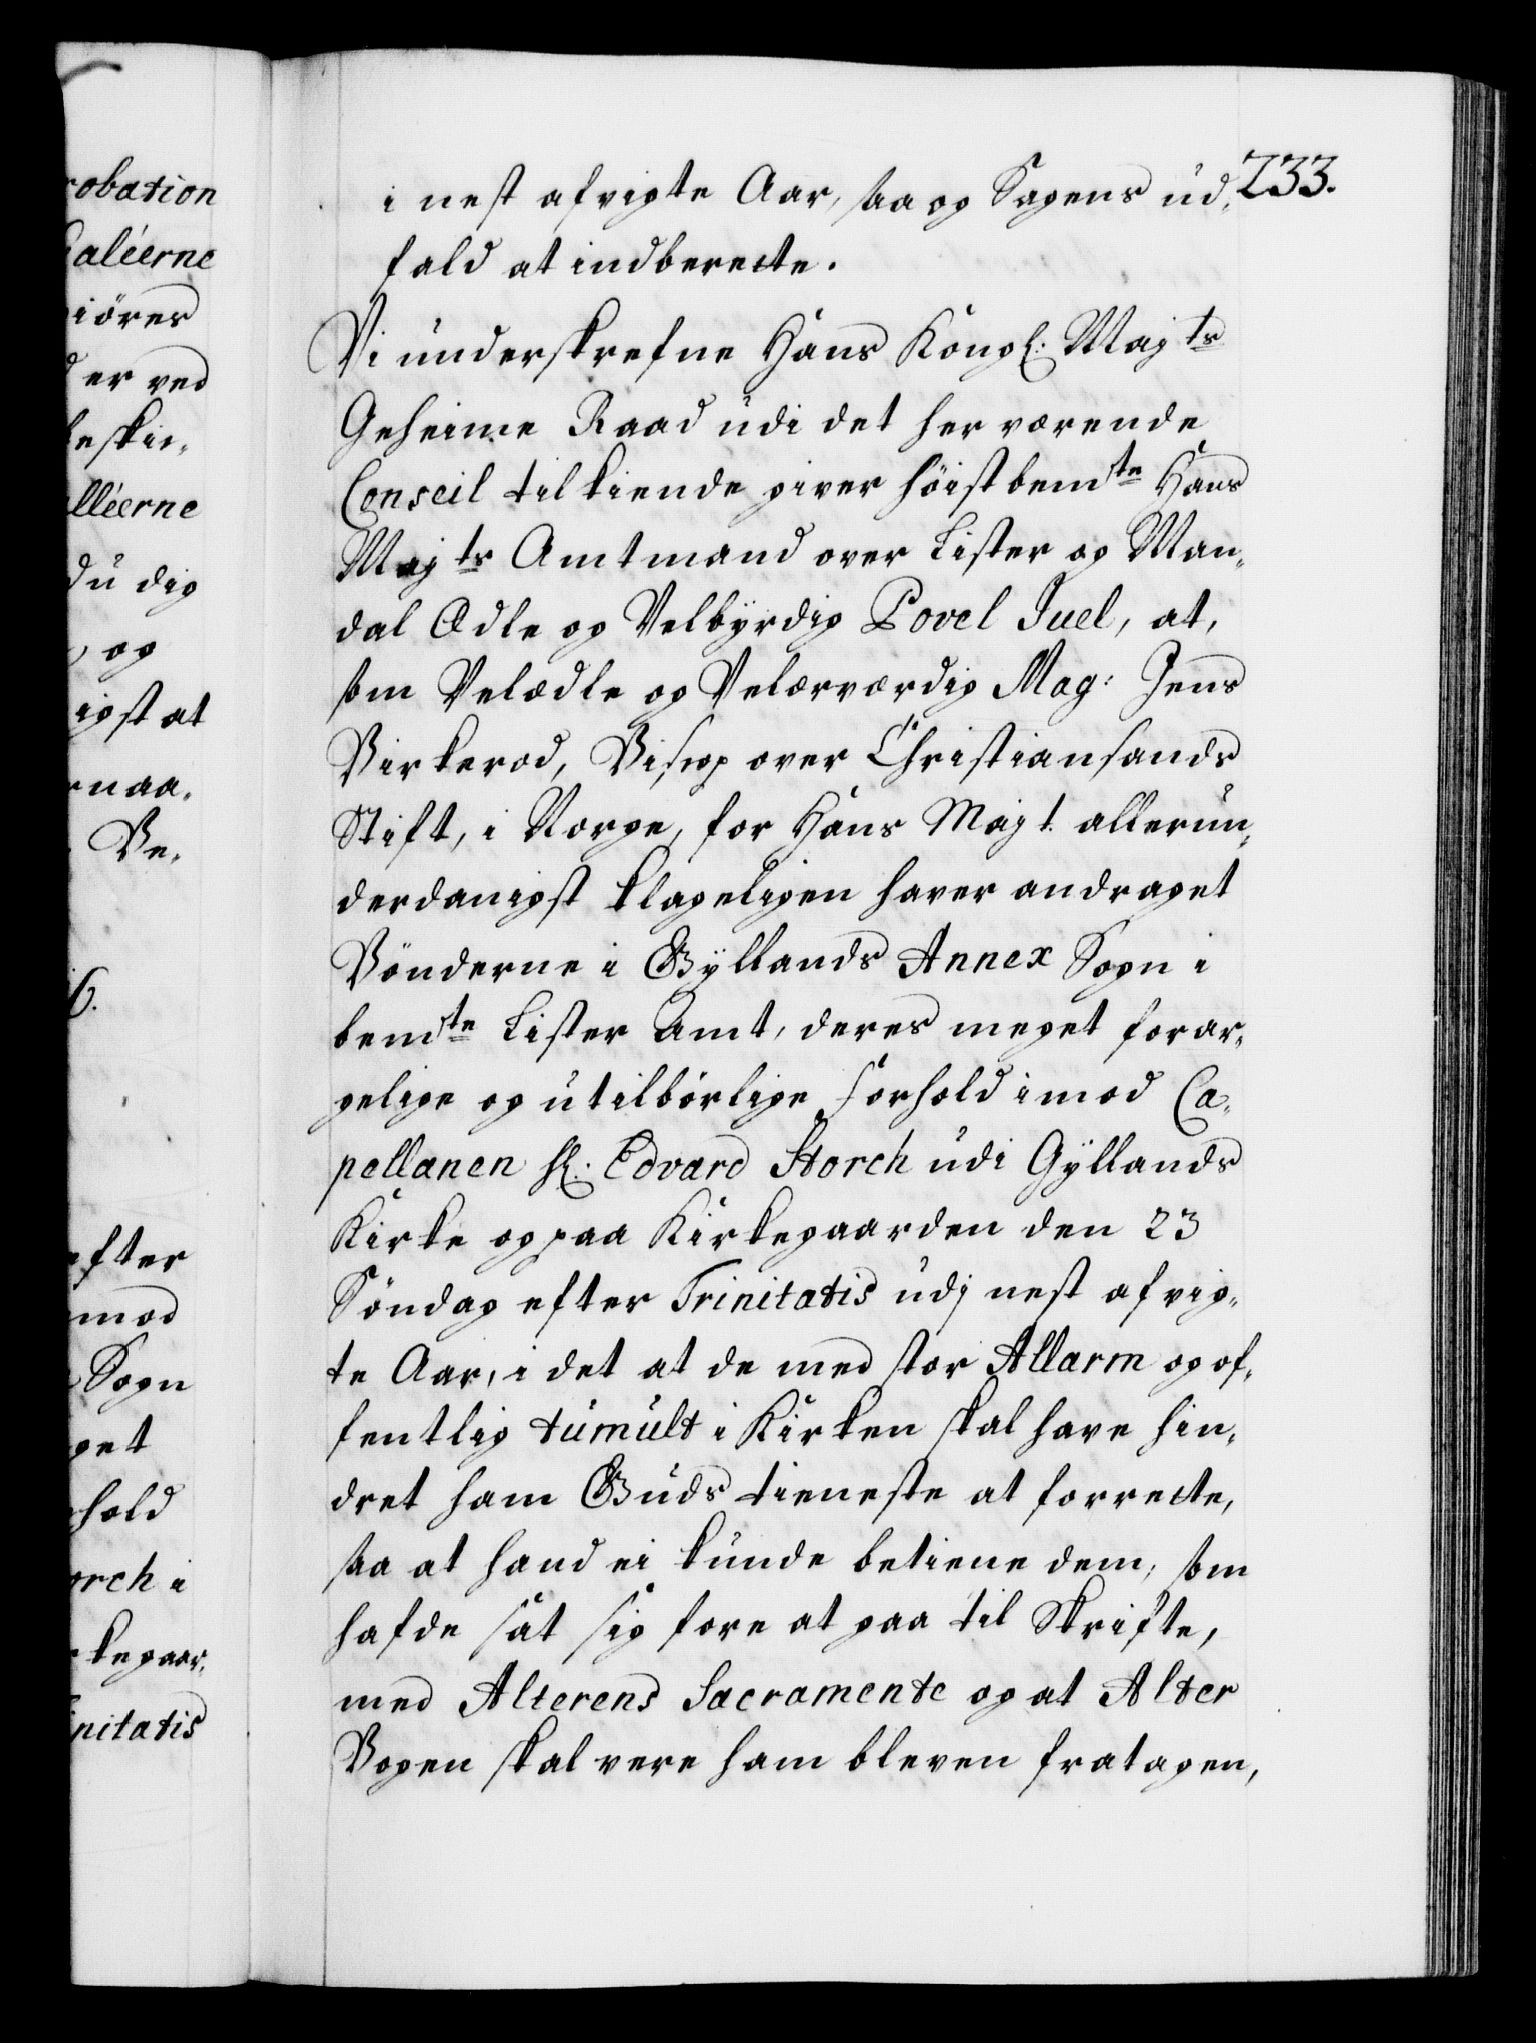 robation
Galéerne
giöres
der ved
beskie,
Alléerne
du dig
, og
igst at
rnaa,
Be,
6.
efter
imod
Sogn
get
hold
orch i
kegaar,
initatis
233.
i nest afvigte Aar, saa og Sagens ud,
fald at indberette.
Vi underskrefne Hans Kongl: Majts
Geheime Raad udi det her værende
Conseil tilkiende giver höistbemte Hans
Majts Amtmand over Lister og Man,
dal Ædle og Velbÿrdig Povel Juel, at,
som Velædle og Velærværdig Mag: Jens
Birkerod, Biscop over Christiansands
Stift, i Norge, for Hans Majt. allerun,
derdanigst klageligen haver andraget
Bönderne i Gÿllands Annex Sogn i
bemte Lister Amt, deres meget forar,
gelige og utilbörlige Forhold imod Ca,
pellanen Hl: Edvard Storch udi Gÿllands
Kirke og paa Kirkegaarden den 23
Söndag efter Trinitatis udj nest afvig,
te Aar, i det at de med stor Allarm og of,
fentlig tumult i Kirken skal have hin,
dret ham Guds tieneste at forrette,
saa at hand ei kunde betiene dem, som
hafde sat sig fore at gaa til Skrifte,
med Alterens Sacramente og at Alter
Bogen skal vere ham bleven fratagen,